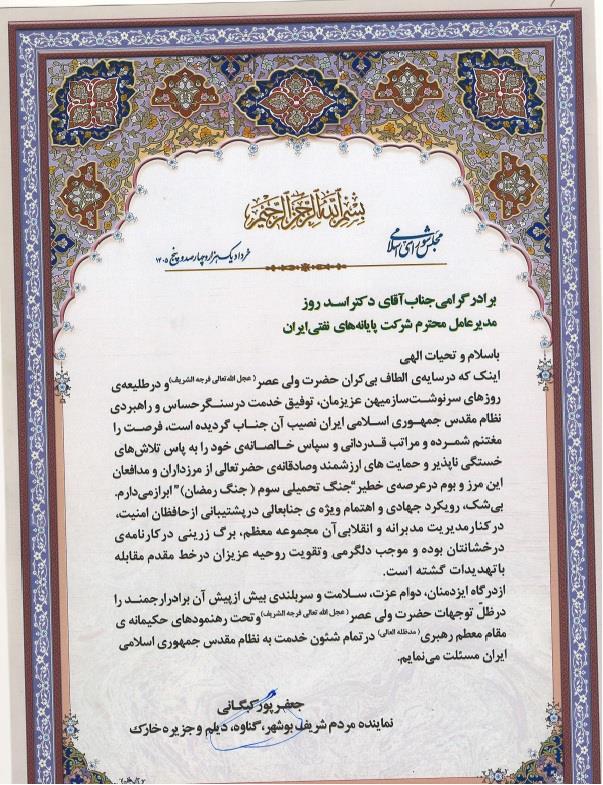 بسم الله الرحمن الرحیم
مجلس شورای اسلامی
خرداد یک هزار و چهارصد و پنج ۱۴۰۵
برادر گرامی جناب آقای دکتر اسد روز
مدیر عامل محترم شرکت پایانه‌های نفتی ایران
باسلام و تحیات الهی
اینک که درسایه‌ی الطاف بی‌کران حضرت ولی عصر (عجل الله تعالی فرجه الشریف) و درطلیعه‌ی
روزهای سرنوشت‌ساز میهن عزیزمان، توفیق خدمت درسنگر حساس و راهبردی
نظام مقدس جمهوری اسلامی ایران نصیب آن جناب گردیده است، فرصت را
مغتنم شمرده و مراتب قدردانی و سپاس خالصانه‌ی خود را به پاس تلاش‌های
خستگی ناپذیر و حمایت های ارزشمند وصادقانه‌ی حضرتعالی از مرزداران و مدافعان
این مرز و بوم درعرصه‌ی خطیر "جنگ تحمیلی سوم (جنگ رمضان)" ابرازمی‌دارم.
بی‌شک، رویکرد جهادی و اهتمام ویژه ی جنابعالی درپشتیبانی ازحافظان امنیت،
درکنار مدیریت مدبرانه و انقلابی آن مجموعه معظم، برگ زرینی درکارنامه‌ی
درخشانتان بوده و موجب دلگرمی وتقویت روحیه عزیزان درخط مقدم مقابله
باتهدیدات گشته است.
ازدرگاه ایزدمنان، دوام عزت، سلامت و سربلندی بیش ازپیش آن برادرارجمند را
درظلّ توجهات حضرت ولی عصر (عجل الله تعالی فرجه الشریف) وتحت رهنمودهای حکیمانه ی
مقام معظم رهبری (مدظله العالی) درتمام شئون خدمت به نظام مقدس جمهوری اسلامی
ایران مسئلت می‌نمایم.
جعفر پورکبگانی
نماینده مردم شریف بوشهر، گناوه، دیلم و جزیره خارک